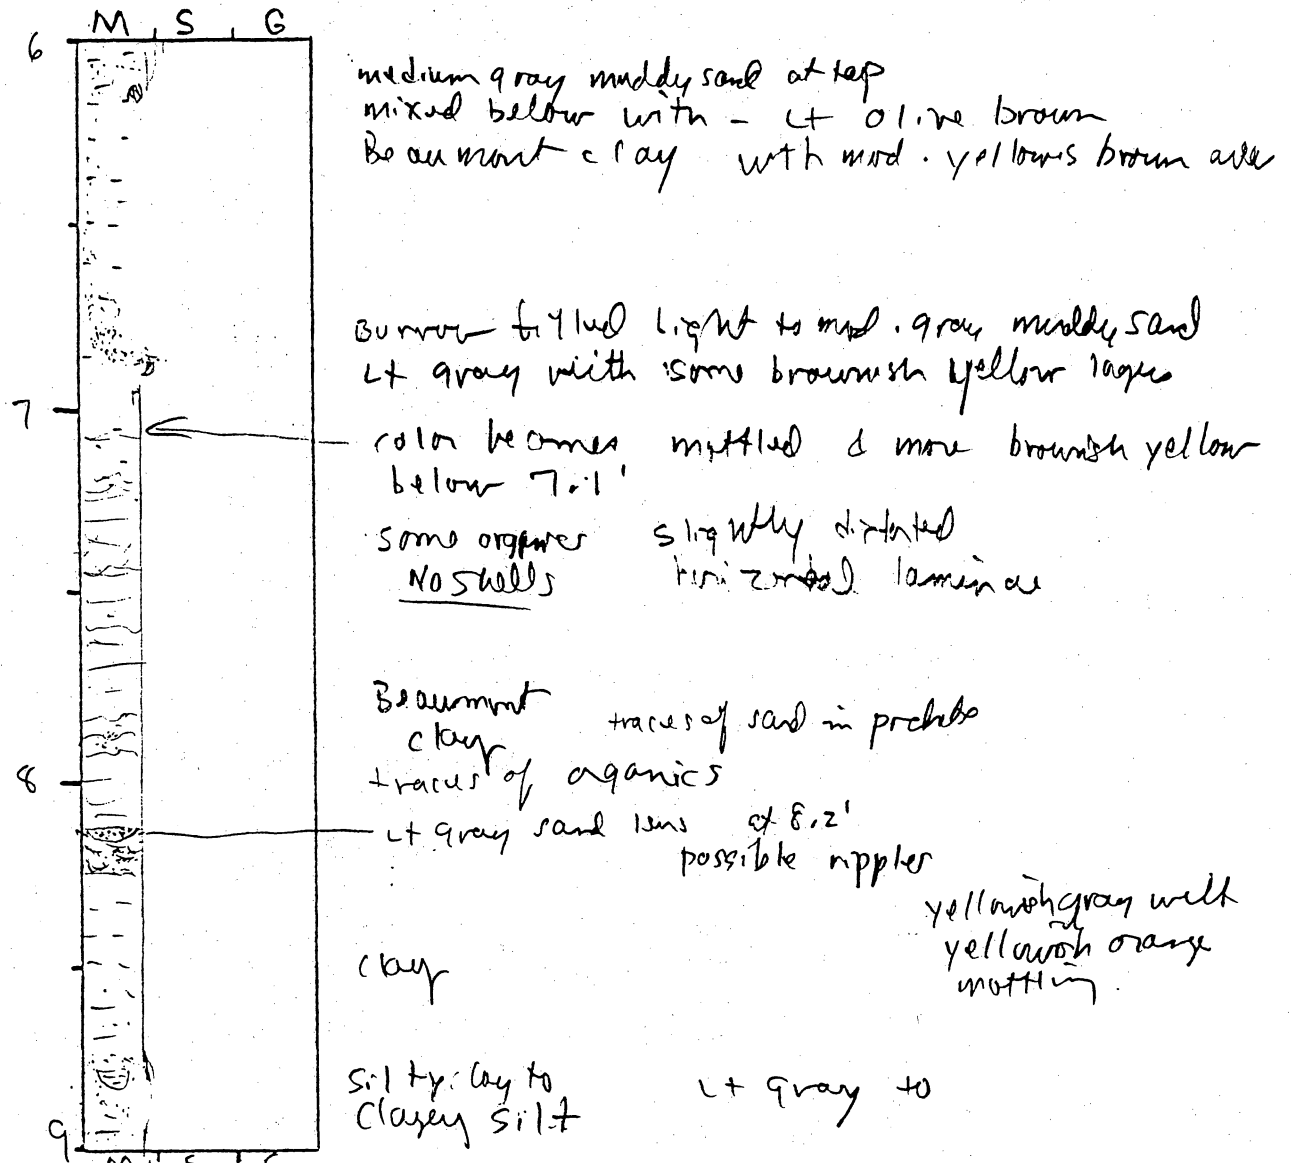 M S G
6
medium gray muddy sand at top
mixed below with - Lt olive brown
Beaumont clay with mod. yellowis brown
Burrow filled light to med. gray muddy sand
Lt gray with some brownish yellow layers
7
color becomes mottled & more brownish yellow
below 7.1'
some organics slightly distorted
No shells horizontal laminae
Beaumont
clay traces of sand in
8
traces of organics
Lt gray sand lens at 8.2'
possible ripples
yellowish gray with
yellowish orange
mottling.
clay
silty clay to Lt gray to
Clayey silt
9
M S G